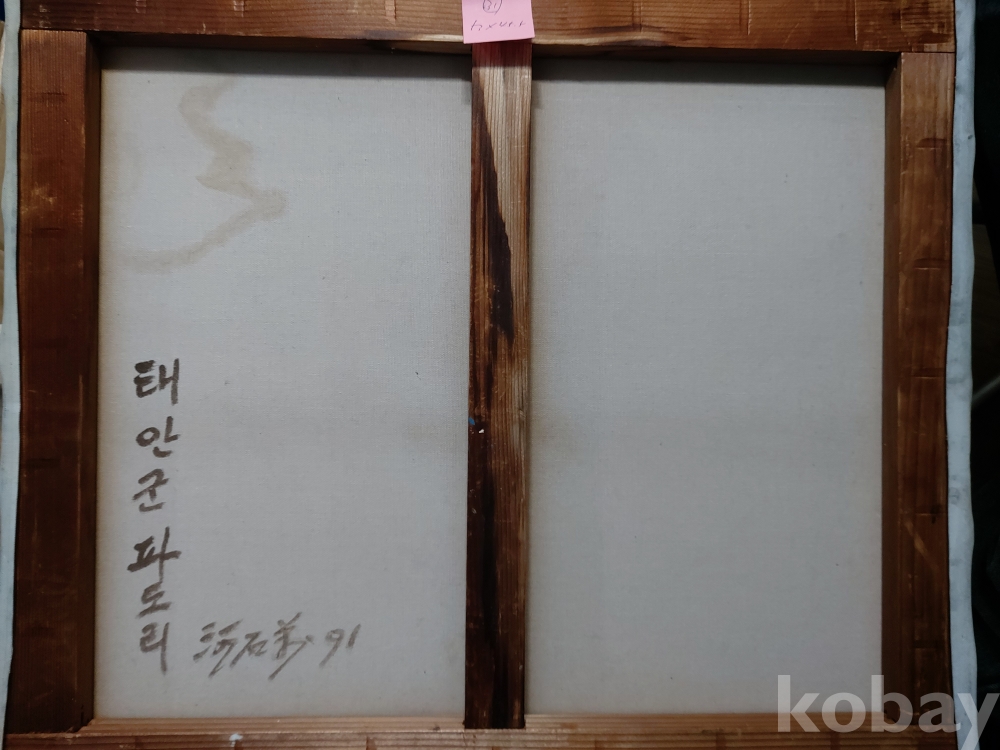 태안군 파도리
河石 91
kobay